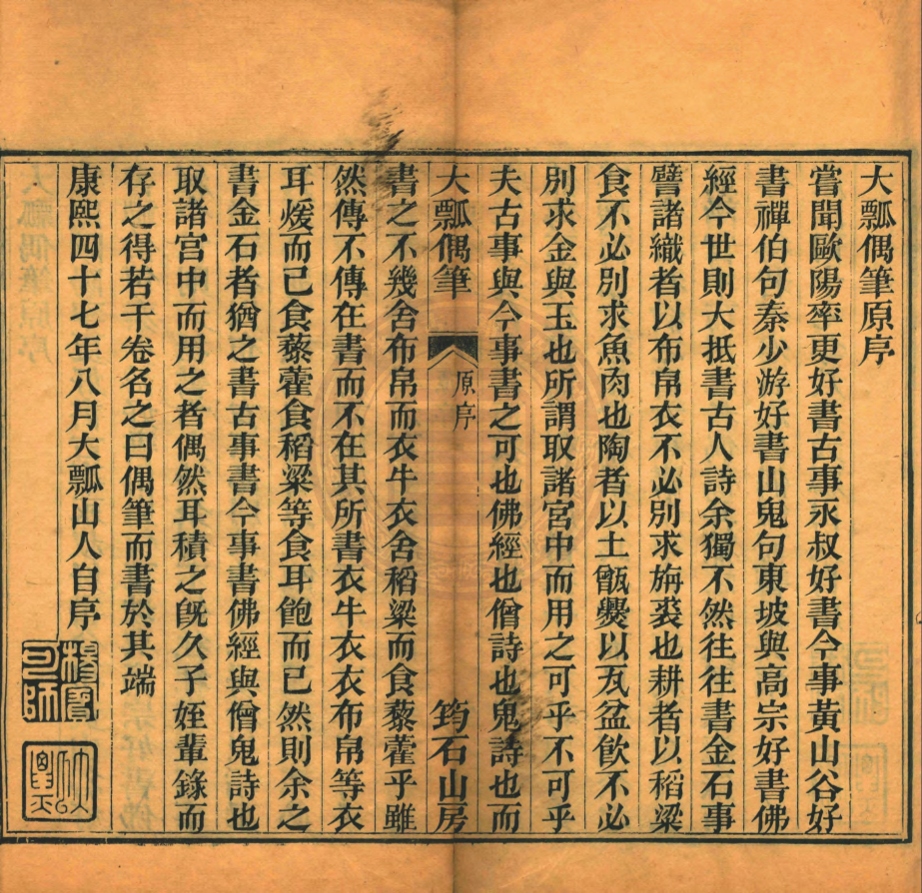 大瓢偶筆原序
嘗聞歐陽率更好書古事永叔好書今事黃山谷好
書禪伯句秦少游好書山鬼句東坡與高宗好書佛
經今世則大抵書古人詩余獨不然往往書金石事
譬諸織者以布帛衣不必別求旃裘也耕者以稻粱
食不必別求魚肉也陶者以土甑爨以瓦盆飲不必
別求金與玉也所謂取諸宮中而用之可乎不可乎
夫古事與今事書之可也佛經也僧詩也鬼詩也而
大瓢偶筆 原序 筠石山房
書之不幾舍布帛而衣牛衣舍稻粱而食藜藿乎雖
然傳不傳在書而不在其所書衣牛衣衣布帛等衣
耳煖而已食藜藿食稻粱等食耳飽而已然則余之
書金石者猶之書古事書今事書佛經與僧鬼詩也
取諸宮中而用之者偶然耳積之旣久子姪輩錄而
存之得若干卷名之曰偶筆而書於其端
康熙四十七年八月大瓢山人自序